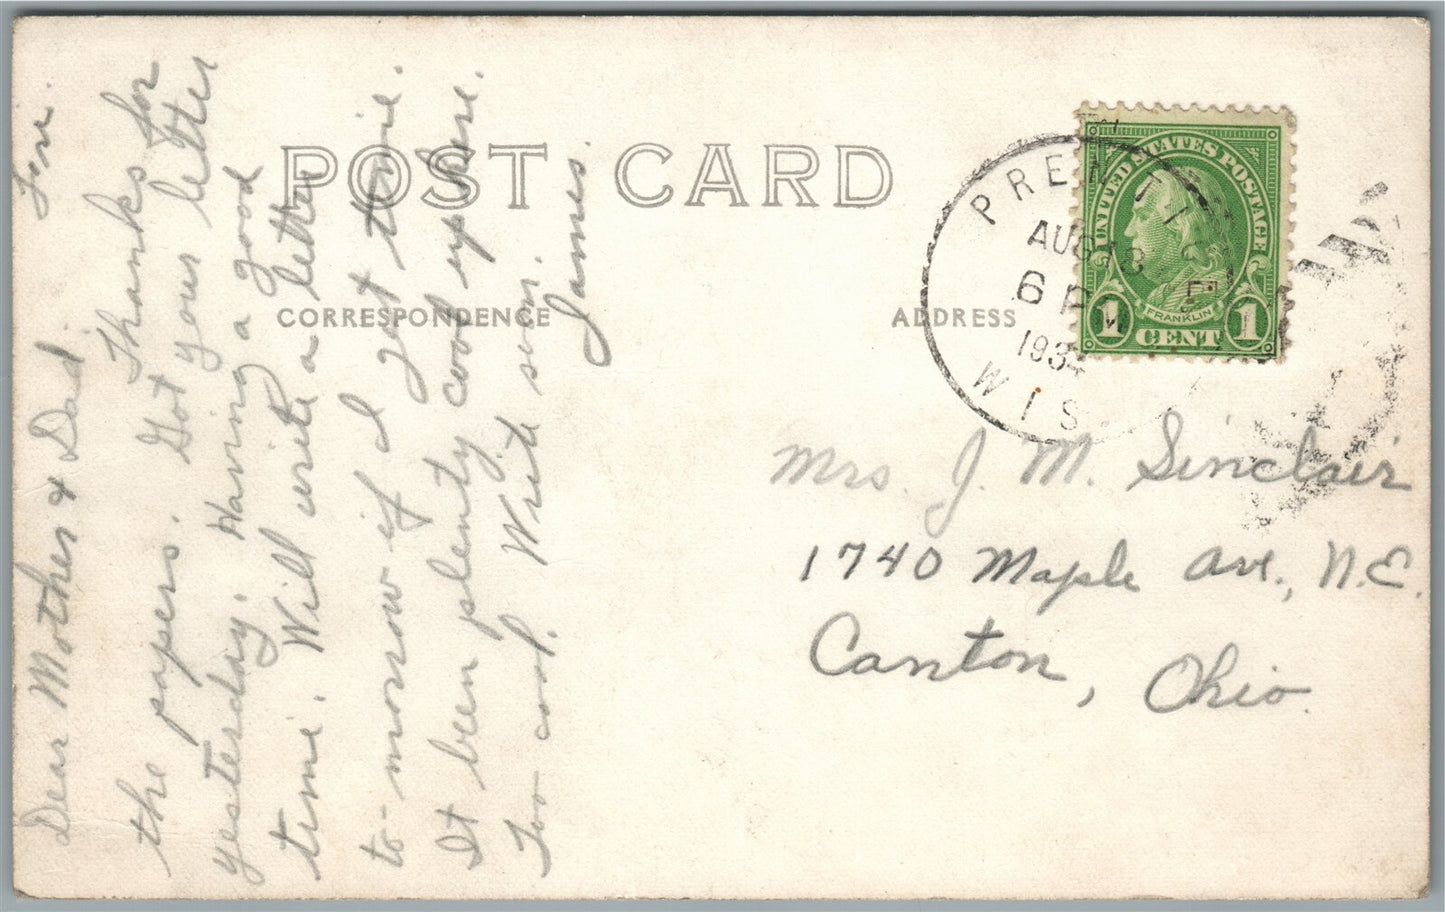 POST CARD
CORRESPONDENCE
ADDRESS
Dear Mother & Dad.
Thanks for
the papers. Got your letter
yesterday. Having a good
time. Will write a letter
to-morrow if I get time.
It been plenty cool up here.
Too cool. Write soon.
James.
PRENTICE
AUG 13
6 P
193
WIS
UNITED STATES POSTAGE
FRANKLIN
1 CENT 1
Mrs. J. M. Sinclair
1740 Maple Ave., N.E.
Canton, Ohio.